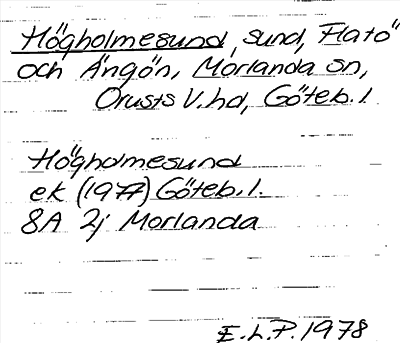 Högholmesund, sund, Flatö
och Ängön, Morlanda sn,
Orusts V.hd, Göteb.l
Högholmesund
ek (1977) Göteb.l.
8A 2j Morlanda
E.L.P. 1978